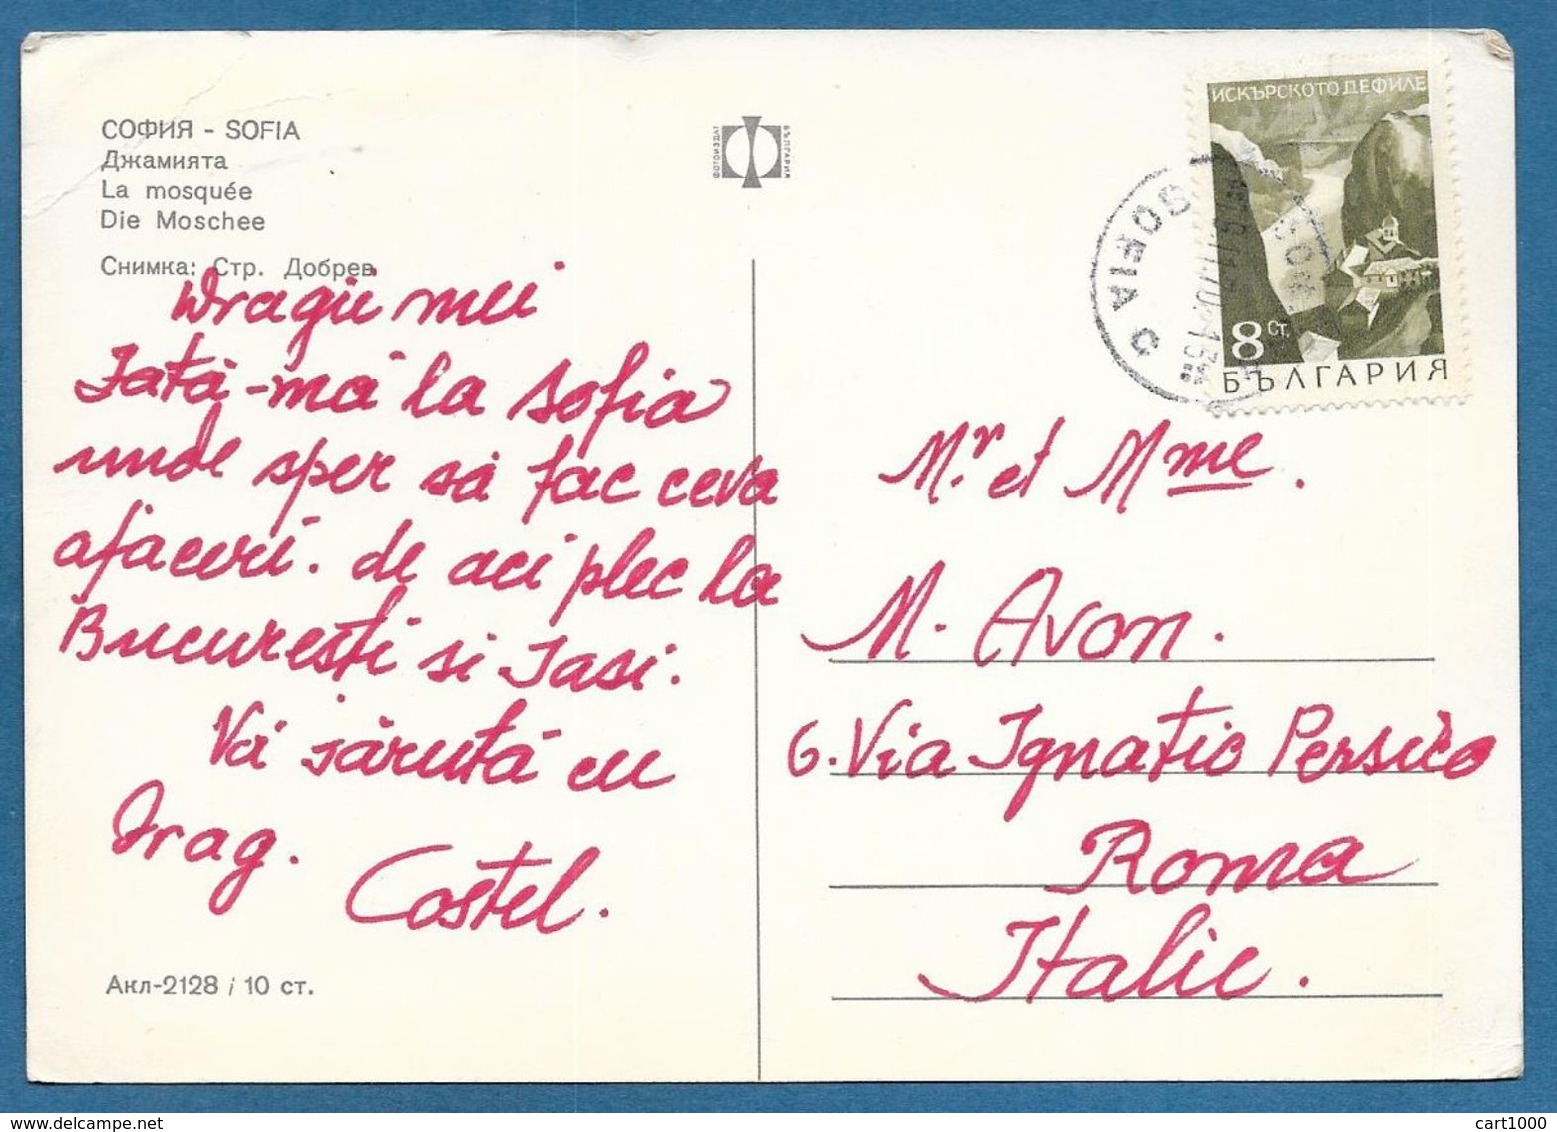 СОФИЯ - SOFIA
Джамията
La mosquée
Die Moschee
Снимка: Стр. Добрев
ФОТОИЗДАТ
БЪЛГАРИЯ
ИСКЪРСКОТО ДЕФИЛЕ
8 СТ.
БЪЛГАРИЯ
SOFIA C
Dragii mei
Iată-mă la Sofia
unde sper să fac ceva
afaceri. de aci plec la
Bucuresti si Iasi.
Vă sărută cu
drag.
Costel.
Mr. et Mme.
M. Avon.
6. Via Ignatio Persico
Roma
Italie.
Акл-2128 / 10 ст.
cart1000